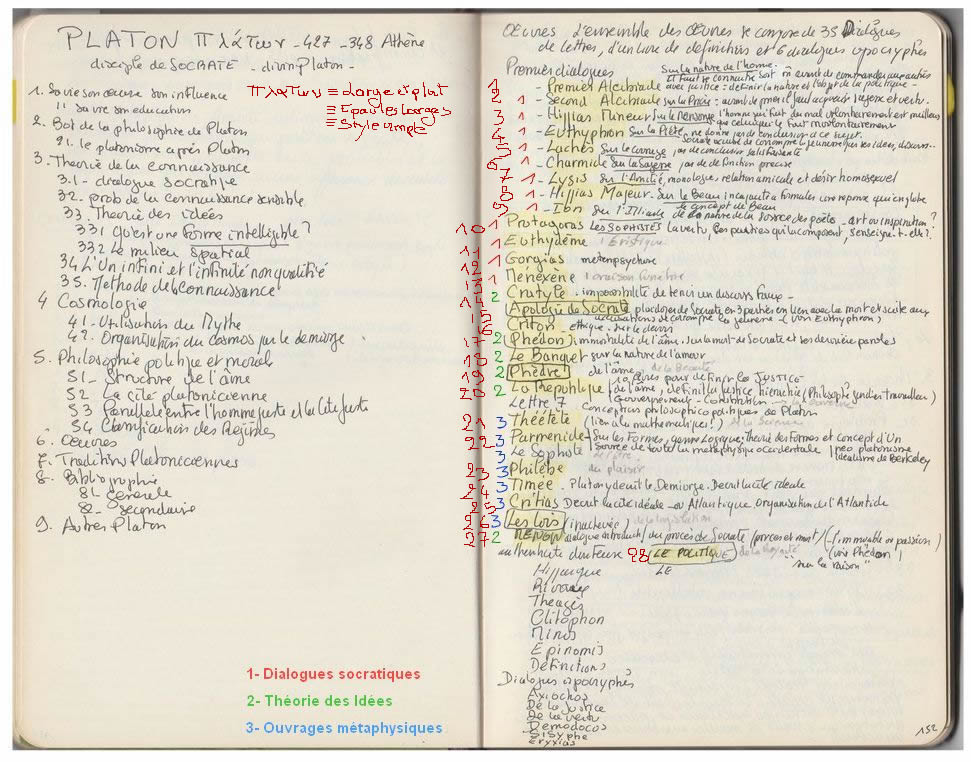 PLATON Πλάτων -427 -348 Athène
disciple de SOCRATE - divin Platon -
1. Sa vie son œuvre son influence
11 sa vie son education
πλατων = Large et plat
= Epaules larges
= Style ample
2. But de la philosophie de Platon
21. le platonisme après Platon
3. Theorie de la connaissance
3.1- dialogue socratique
32. prob de la connaissance sensible
33. Theorie des idées
331 qu'est une Forme intelligible?
332 Le milieu spatial
34 L'Un infini et l'infinité non qualifié
35. Methode de connaissance
4 Cosmologie
41- Utilisation du Mythe
42. Organisation du cosmos par le demiurge
5. Philosophie politique et morale
51- Structure de l'âme
52 La cité platonicienne
53 Parallele entre l'homme juste et la cité juste
54 Classification des Régimes
6. Œuvres
7. Traditions Platoniciennes
8. Bibliographie
81 Génerale
82- secondaire
9. Autres Platon
1- Dialogues socratiques
2- Théorie des Idées
3- Ouvrages métaphysiques
Œuvres L'ensemble des Œuvres se compose de 35 Dialogues
de lettres, d'un livre de definition et 6 dialogues apocryphes
Premiers dialogues
Sur la nature de l'homme.
Il faut se connaitre soit avant de commander aux autres
1 - Premier Alcibiade avec justice = definir la nature et l'objet de la politique -
2 1 - Second Alcibiade sur la Prière : avant de prier il faut acquerir sagesse et vertu.
3 1 - Hippias Mineur sur le Mensonge l'homme qui fait du mal volontairement est meilleur
que celui qui le fait involontairement
4 1 - Euthyphron Sur la Piété, ne donne pas de conclusion à ce sujet.
Socrate accusé de corrompre la jeunesse par ses idées, discours..
5 1 - Lachès Sur le courage pas de conclusion satisfaisante
6 1 - Charmide sur la Sagesse pas de definition precise
7 1 - Lysis sur l'Amitié, monologue, relation amicale et désir homosexuel
8 1 - Hippias Majeur. sur le Beau incapacité à formuler une reponse qui englobe
le concept de Beau
9 1 - Ion sur l'Illiade de la nature de la source des poètes - art ou inspiration?
10 1 Protagoras Les SOPHISTES la vertu, les parties qui la composent, s'enseigne-t-elle?
11 1 Euthydème l'Eristique
12 1 Gorgias metempsychose
13 1 Ménéxène l'oraison funèbre
14 2 Cratyle. impossibilité de tenir un discours faux -
15 Apologie de Socrate plaidoyer de Socrate en 3 parties en lien avec la mort et suite aux
accusations de corrompre la jeunesse (voir Euthyphron)
16 Criton - ethique. sur le devoir
17 2 Phédon immortalité de l'âme. sur la mort de Socrate et ses dernière paroles
18 2 Le Banquet sur la nature de l'amour
19 2 Phèdre de l'âme de la Beauté
20 2 La Republique 10 livres pour definir la JUSTICE -
de l'âme, definit la justice hierarchie (Philosophe gardien travailleur)
(Gouvernement - Constitution
Lettre 7 Conceptions philosophico politiques de Platon
21 3 Théétète (lien à la mathematique!) de la Science
22 3 Parmenide - Sur les Formes, genre Logique, Theorie des Formes et concept d'Un
Source de toute la metaphysique occidentale | neo platonisme
idealisme de Berkeley
3 Le Sophiste de l'être
23 3 Philèbe du plaisir
24 3 Timée. Platon y decrit le Demiurge. Decrit la cité ideale
25 3 Critias Decrit la cité idéale ou Atlantique. Organisation de l'Atlantide
26 3 Les lois (inachevée) de la legislation
27 2 MENON dialogue introductif du procès de Socrate (procès et mort) (voir Phedon)
authenticité douteuse 28 LE POLITIQUE de la Royauté "sur la raison"
Hipparque LE
Rivaux
Theagès
Clitophon
Minos
Epinomis
Définitions
Dialogues apocryphes
Axiochos
De la Justice
De la vertu
Démodocos
Sisyphe
Eryxias
152